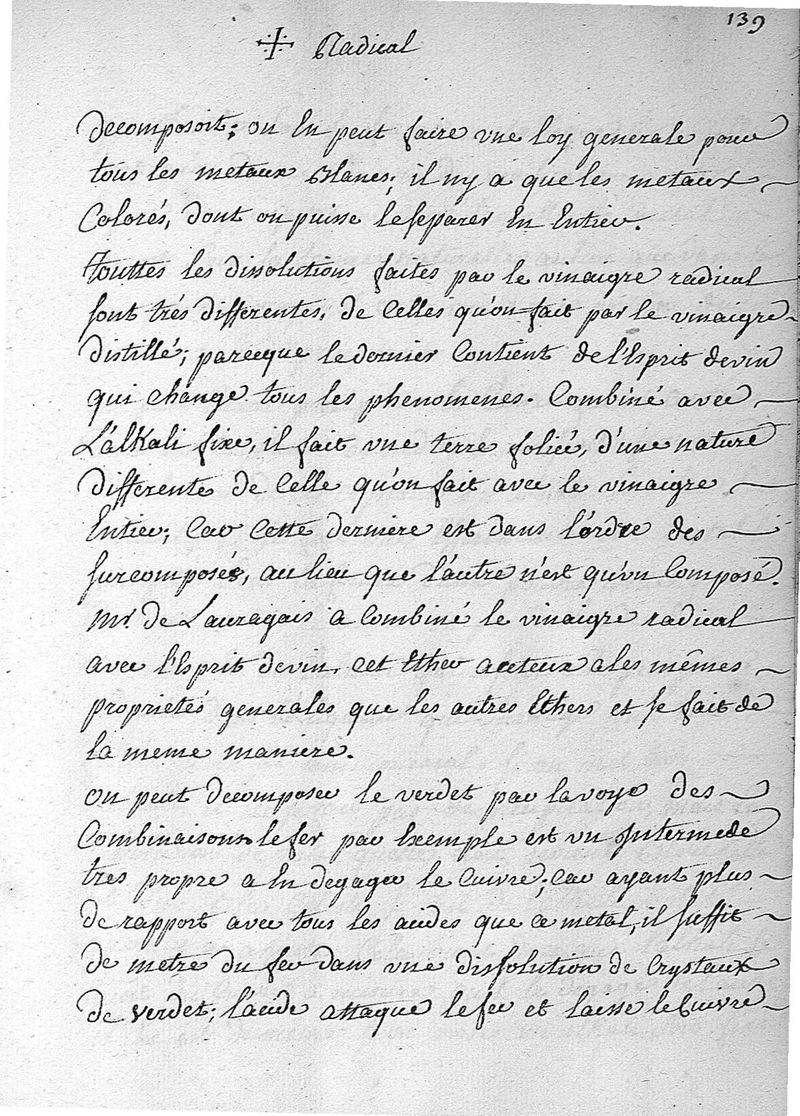 139
Radical
decomposoit; on En peut faire vne loy generale pour
tous les metaux Blancs; il ny a que les metaux
Colorés, dont on puisse le separer En Entier.
Touttes les dissolutions faites par le vinaigre radical
sont trés differentes, de Celles qu'on fait par le vinaigre
distillé; parceque le dernier Contient de l'Esprit de vin
qui change tous les phenomenes. Combiné avec
L'alKali fixe, il fait vne terre foliée, d'une nature
differente de Celle qu'on fait avec le vinaigre
Entier; Car Cette derniere est dans l'ordre des
surcomposés, au lieu que l'autre n'est qu'un Composé.
Mr. de Lauragais a Combiné le vinaigre radical
avec l'Esprit de vin, cet Ether aceteux a les mêmes
proprietés generales que les autres Ethers et se fait de
la meme maniere.
On peut decomposer le verdet par la voye des
Combinaisons le fer par Exemple est un Intermede
tres propre a En degager le Cuivre; car ayant plus
de rapport avec tous les acides que ce metal, il suffit
de metre du fer dans vne dissolution de Crystaux
de verdet; l'acide attaque le fer et laisse le Cuivre